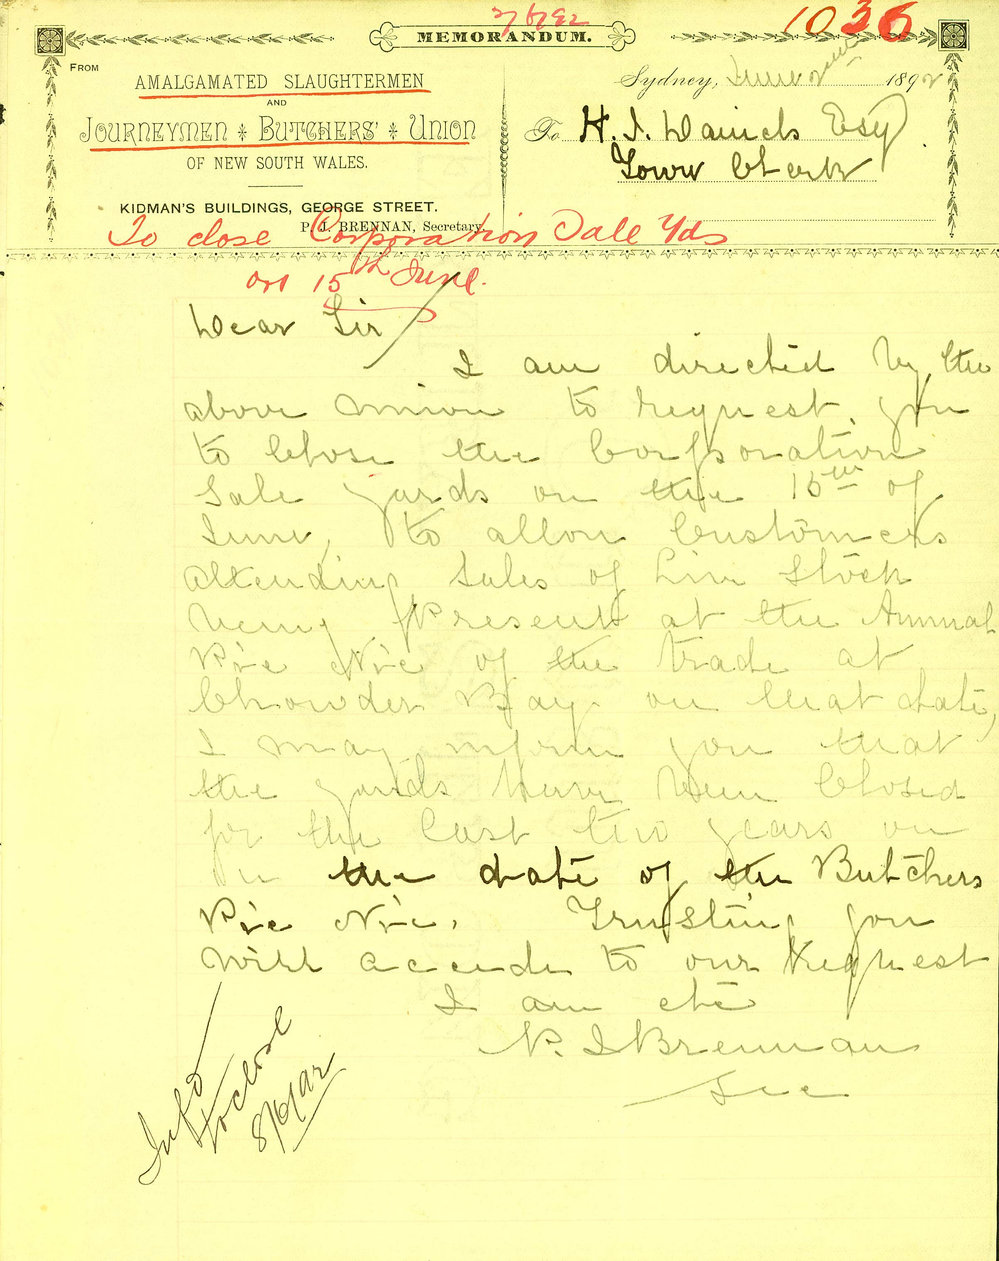 7/6/92
1036
MEMORANDUM.
FROM
AMALGAMATED SLAUGHTERMEN
AND
JOURNEYMEN BUTCHERS' UNION
OF NEW SOUTH WALES.
KIDMAN'S BUILDINGS, GEORGE STREET.
P. J. BRENNAN, Secretary.
Sydney, June 2nd 1892
To H. J. Daniels Esq
Town Clerk
To close Corporation Sale Yds
on 15th June.
Dear Sir
I am directed by the
above union to request you
to Close the Corporation
Sale yards on the 15th of
June, to allow Customers
attending Sales of Live Stock
being Present at the Annual
Pic Nic of the trade at
Chowder Bay on that date,
I may inform you that
the yards have been Closed
for the last two years on
the date of the Butchers
Pic Nic. Trusting you
will accede to our request
I am etc
P. J Brennan
Sec
to close
8/6/92